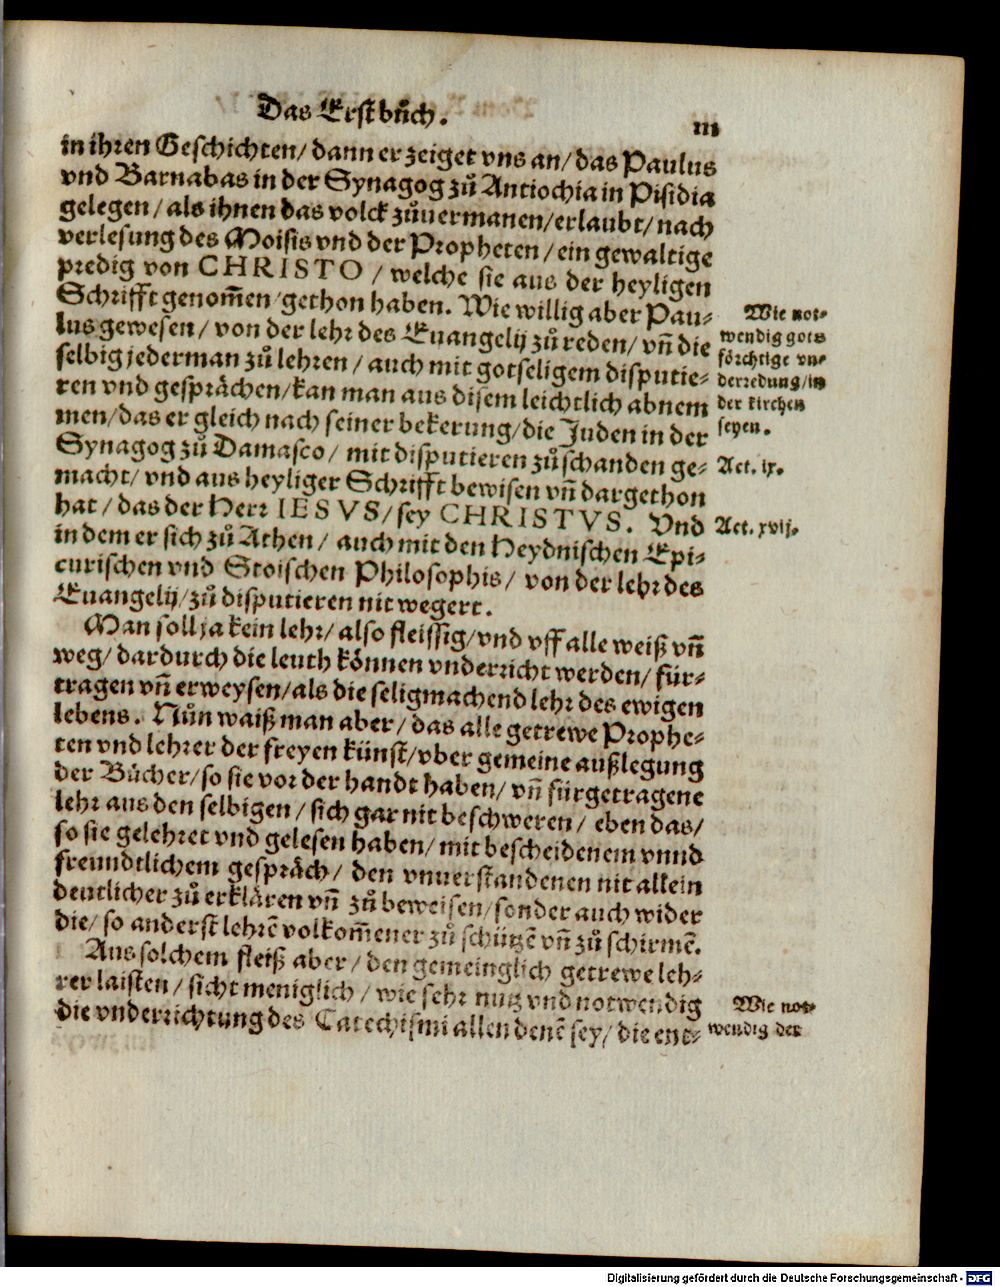 Das Erst bůch.
III
in ihren Geschichten/ dann er zeiget vns an/ das Paulus
vnd Barnabas in der Synagog zů Antiochia in Pisidia
gelegen/ als ihnen das volck zůuermanen/ erlaubt/ nach
verlesung des Moisis vnd der Propheten/ ein gewaltige
predig von CHRISTO/ welche sie aus der heyligen
Schrifft genom̄en/ gethon haben. Wie willig aber Pau-
lus gewesen/ von der lehr des Euangelij zů reden/ vn̄ die
selbig jederman zů lehren/ auch mit gotseligem disputie-
ren vnd gesprächen/ kan man aus disem leichtlich abnem
men/ das er gleich nach seiner bekerung/ die Juden in der
Synagog zů Damasco/ mit disputieren zů schanden ge-
macht/ vnd aus heyliger Schrifft bewisen vn̄ dargethon
hat/ das der Herr IESVS/ sey CHRISTVS. Vnd
in dem er sich zů Athen/ auch mit den Heydnischen Epi-
curischen vnd Stoischen Philosophis/ von der lehr des
Euangelij/ zů disputieren nit wegert.
Man soll ja kein lehr/ also fleissig/ vnd vff alle weiß vn̄
weg/ dardurch die leuth können vnderricht werden/ für-
tragen vn̄ erweysen/ als die seligmachend lehr des ewigen
lebens. Nůn waiß man aber/ das alle getrewe Prophe-
ten vnd lehrer der freyen künst/ vber gemeine außlegung
der Bücher/ so sie vor der handt haben/ vn̄ fürgetragene
lehr aus den selbigen/ sich gar nit beschweren/ eben das/
so sie gelehret vnd gelesen haben/ mit bescheidenem vnnd
freundtlichem gespräch/ den vnuerstandenen nit allein
deutlicher zů erklären vn̄ zů beweisen/ sonder auch wider
die/ so anderst lehrē volkom̄ener zů schützē vn̄ zů schirmē.
Aus solchem fleiß aber/ den gemeinglich getrewe leh-
rer laisten/ sicht meniglich/ wie sehr nutz vnd notwendig
die vnderrichtung des Catechismi allen denē sey/ die ent-
Wie not-
wendig gots
förchtige vn-
derredung/ in
der kirchen
seyen.
Act. ix.
Act. xvij.
Wie not-
wendig der
Digitalisierung gefördert durch die Deutsche Forschungsgemeinschaft - DFG